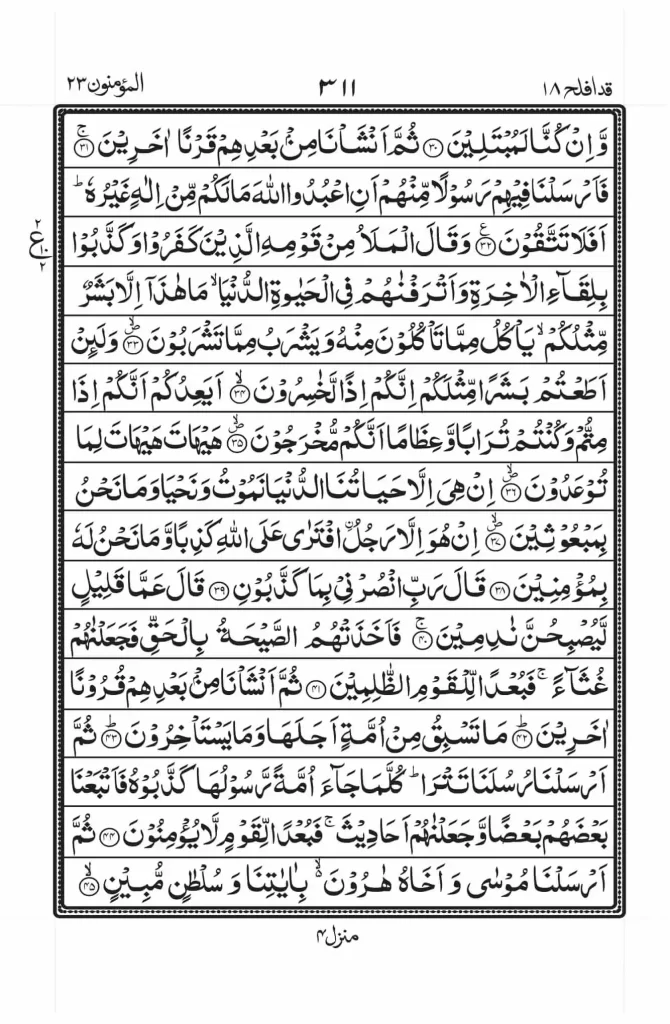 قد افلح ١٨ ٣١١ المؤمنون ٢٣
وَّاِنۡ كُنَّا لَمُبۡتَلِيۡنَ ﴿۳۰﴾ ثُمَّ اَنۡشَاۡنَا مِنۡۢ بَعۡدِهِمۡ قَرۡنًا اٰخَرِيۡنَ ۚ‏﴿۳۱﴾
فَاَرۡسَلۡنَا فِيۡهِمۡ رَسُوۡلًا مِّنۡهُمۡ اَنِ اعۡبُدُوا اللّٰهَ مَا لَـكُمۡ مِّنۡ اِلٰهٍ غَيۡرُهٗ ؕ
اَفَلَا تَتَّقُوۡنَ ﴿۳۲﴾ وَقَالَ الۡمَلَاُ مِنۡ قَوۡمِهِ الَّذِيۡنَ كَفَرُوۡا وَكَذَّبُوۡا
ع ٢ ١٠ ٢
بِلِقَآءِ الۡاٰخِرَةِ وَاَتۡرَفۡنٰهُمۡ فِى الۡحَيٰوةِ الدُّنۡيَا ۙ مَا هٰذَاۤ اِلَّا بَشَرٌ
مِّثۡلُكُمۡ ۙ يَاۡكُلُ مِمَّا تَاۡكُلُوۡنَ مِنۡهُ وَيَشۡرَبُ مِمَّا تَشۡرَبُوۡنَ ۙ‏﴿۳۳﴾ وَلَئِنۡ
اَطَعۡتُمۡ بَشَرًا مِّثۡلَـكُمۡ اِنَّكُمۡ اِذًا لَّخٰسِرُوۡنَ ۙ‏﴿۳۴﴾ اَيَعِدُكُمۡ اَنَّكُمۡ اِذَا
مِتُّمۡ وَكُنۡتُمۡ تُرَابًا وَّعِظَامًا اَنَّكُمۡ مُّخۡرَجُوۡنَ ۙ‏﴿۳۵﴾ هَيۡهَاتَ هَيۡهَاتَ لِمَا
تُوۡعَدُوۡنَ ۙ‏﴿۳۶﴾ اِنۡ هِىَ اِلَّا حَيَاتُنَا الدُّنۡيَا نَمُوۡتُ وَنَحۡيَا وَمَا نَحۡنُ
بِمَبۡعُوۡثِيۡنَ ۙ‏﴿۳۷﴾ اِنۡ هُوَ اِلَّا رَجُلُ اۨفۡتَـرٰى عَلَى اللّٰهِ كَذِبًا وَّمَا نَحۡنُ لَهٗ
بِمُؤۡمِنِيۡنَ ﴿۳۸﴾ قَالَ رَبِّ انْصُرۡنِىۡ بِمَا كَذَّبُوۡنِ ﴿۳۹﴾ قَالَ عَمَّا قَلِيۡلٍ
لَّيُصۡبِحُنَّ نٰدِمِيۡنَ ۚ‏﴿۴۰﴾ فَاَخَذَتۡهُمُ الصَّيۡحَةُ بِالۡحَـقِّ فَجَعَلۡنٰهُمۡ
غُثَآءً ۚ فَبُعۡدًا لِّـلۡقَوۡمِ الظّٰلِمِيۡنَ ﴿۴۱﴾ ثُمَّ اَنۡشَاۡنَا مِنۡۢ بَعۡدِهِمۡ قُرُوۡنًا
اٰخَرِيۡنَ ؕ‏﴿۴۲﴾ مَا تَسۡبِقُ مِنۡ اُمَّةٍ اَجَلَهَا وَمَا يَسۡتَاۡخِرُوۡنَ ؕ‏﴿۴۳﴾ ثُمَّ
اَرۡسَلۡنَا رُسُلَنَا تَتۡـرَا ؕ كُلَّمَا جَآءَ اُمَّةً رَّسُوۡلُهَا كَذَّبُوۡهُ فَاَتۡبَـعۡنَا
بَعۡضَهُمۡ بَعۡضًا وَّجَعَلۡنٰهُمۡ اَحَادِيۡثَ ۚ فَبُعۡدًا لِّـقَوۡمٍ لَّا يُؤۡمِنُوۡنَ ﴿۴۴﴾ ثُمَّ
اَرۡسَلۡنَا مُوۡسٰى وَاَخَاهُ هٰرُوۡنَ ۙ بِاٰيٰتِنَا وَسُلۡطٰنٍ مُّبِيۡنٍ ۙ‏﴿۴۵﴾
منزل ۴